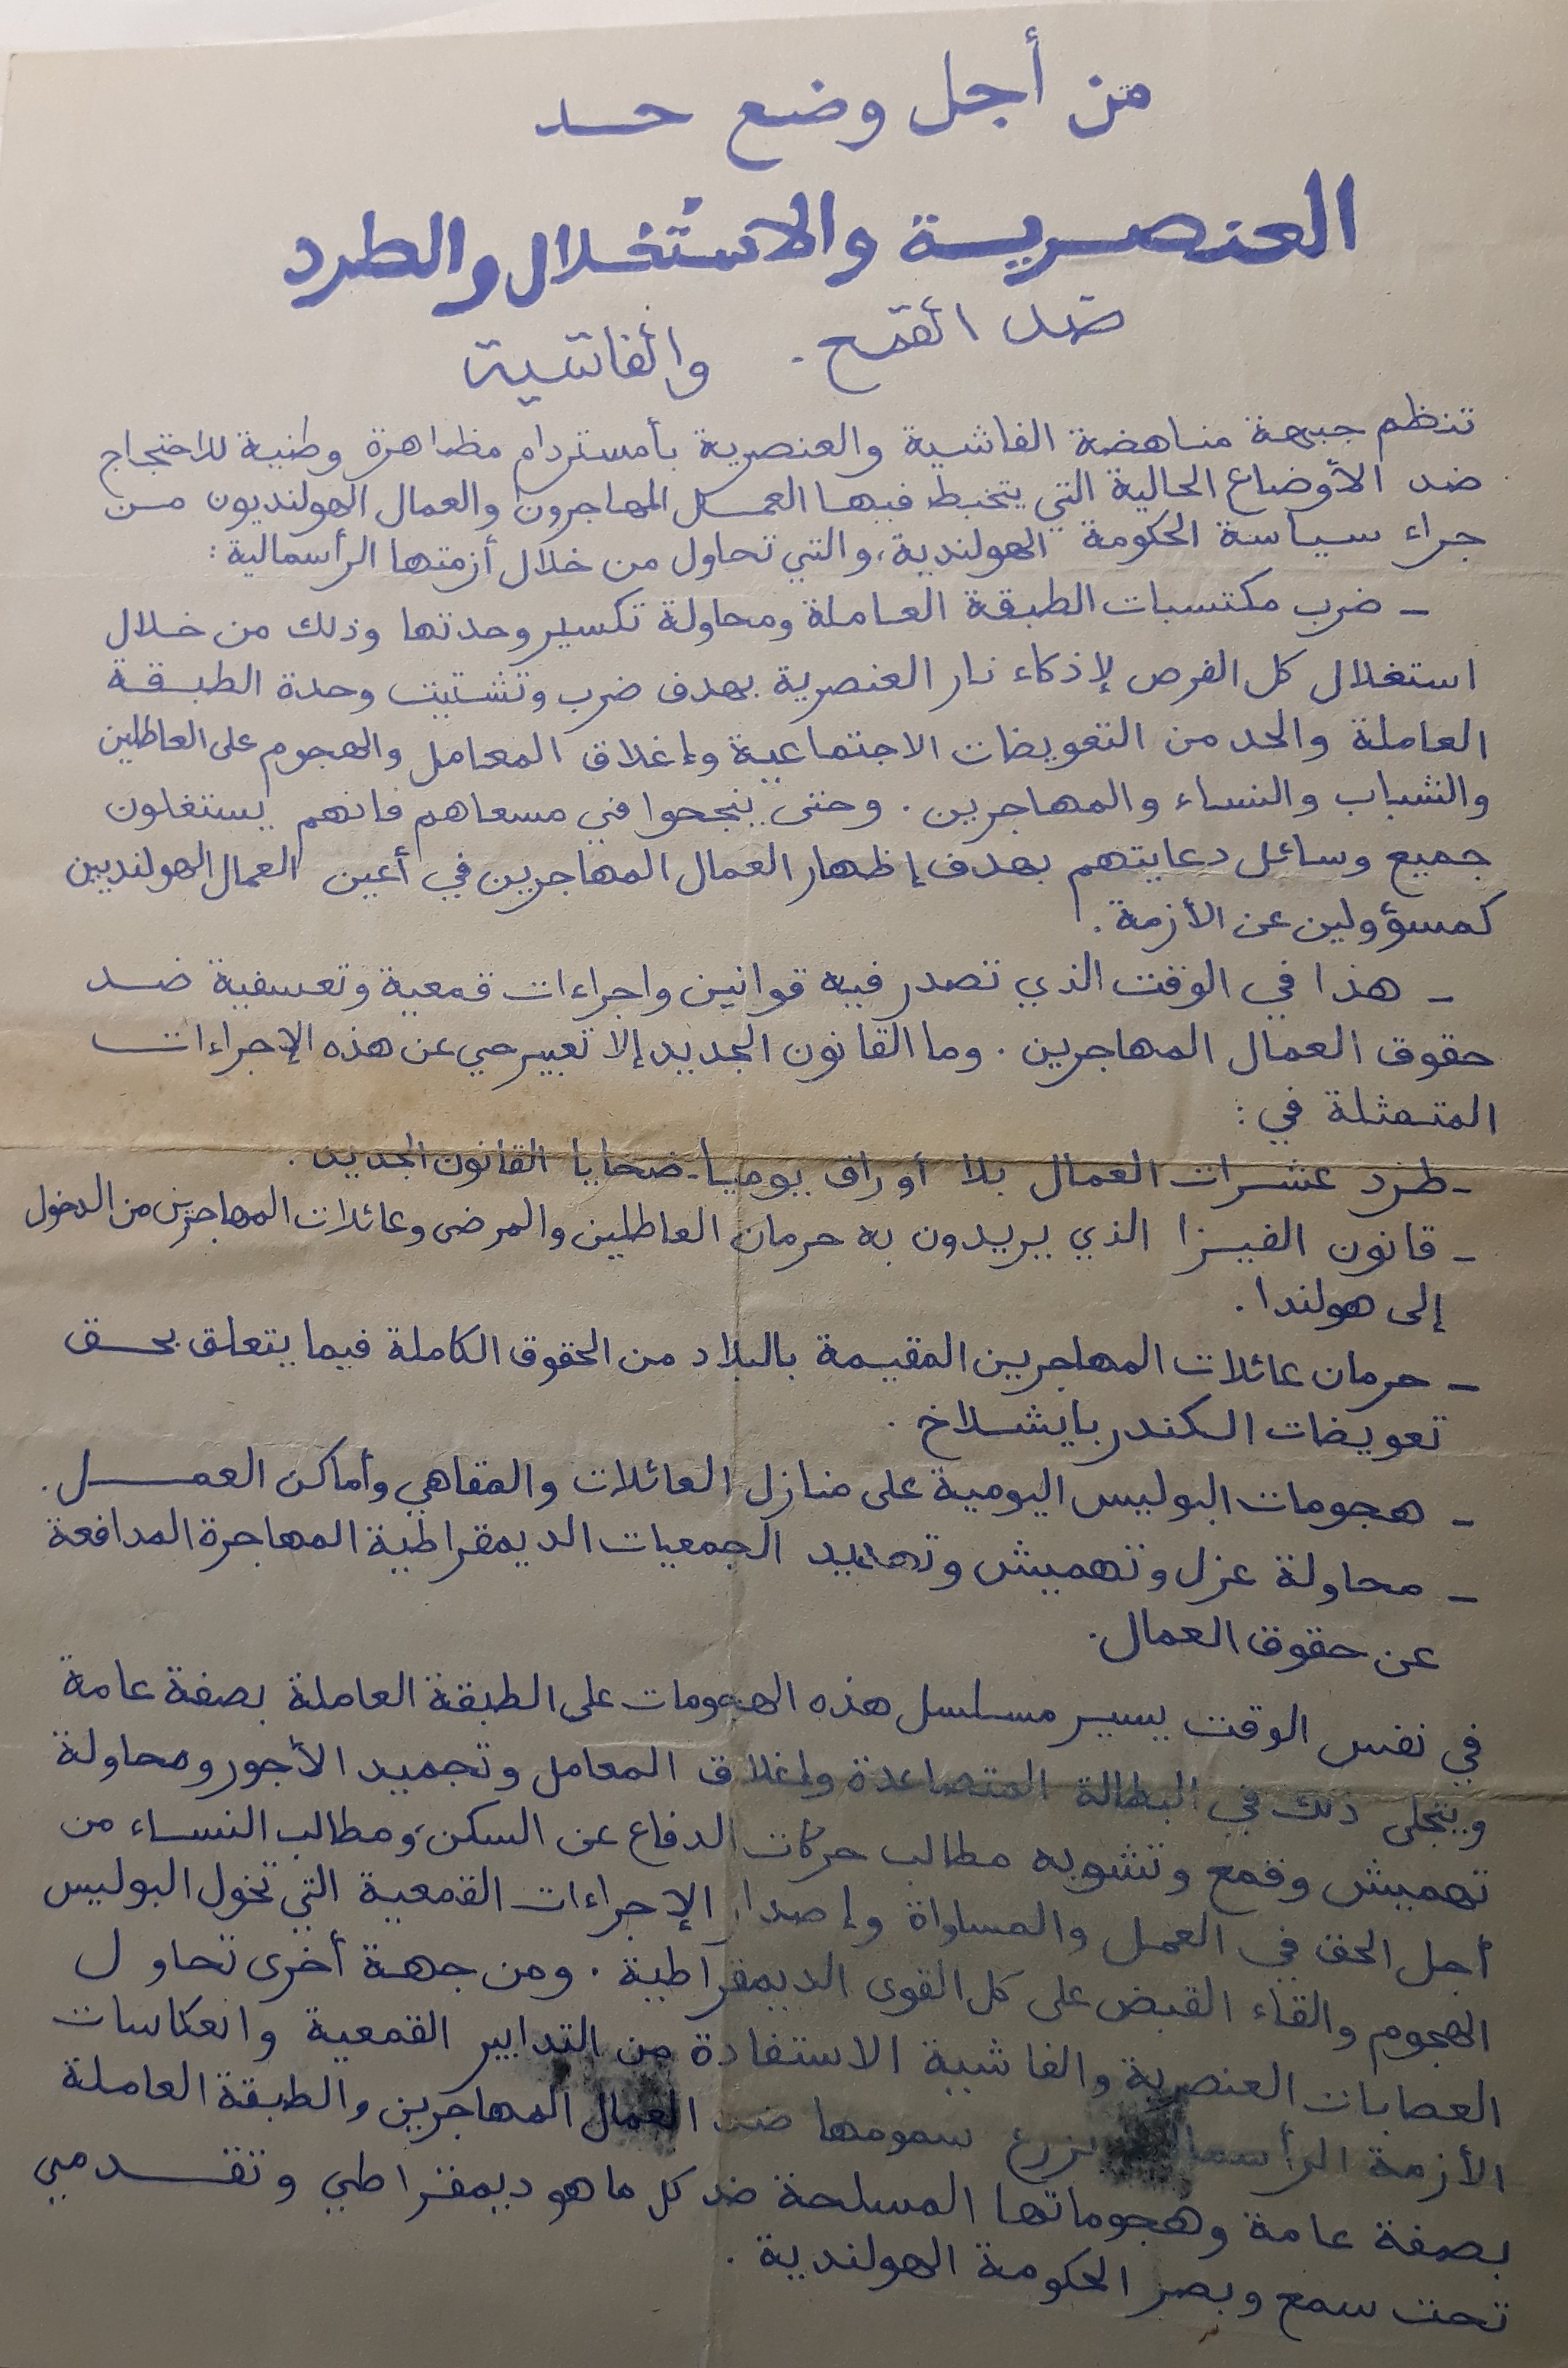 من أجل وضع حد
العنصرية والاستغلال والطرد
ضد القمع . والفاشية
تنظم جبهة مناهضة الفاشية والعنصرية بأمستردام مظاهرة وطنية للاحتجاج
ضد الأوضاع الحالية التي يتخبط فيها العمل المهاجرون والعمال الهولنديون من
جراء سياسة الحكومة الهولندية، والتي تحاول من خلال أزمتها الرأسمالية :
– ضرب مكتسبات الطبقة العاملة ومحاولة تكسير وحدتها وذلك من خلال
استغلال كل الفرص لإذكاء نار العنصرية بهدف ضرب وتشتيت وحدة الطبقة
العاملة والحد من التعويضات الاجتماعية وإغلاق المعامل والهجوم على العاطلين
والشباب والنساء والمهاجرين . وحتى ينجحوا في مسعاهم فانهم يستغلون
جميع وسائل دعايتهم بهدف إظهار العمال المهاجرين في أعين العمال الهولنديين
كمسؤولين عن الأزمة .
– هذا في الوقت الذي تصدر فيه قوانين واجراءات قمعية وتعسفية ضد
حقوق العمال المهاجرين . وما القانون الجديد إلا تعبير حي عن هذه الإجراءات
المتمثلة في :
- طرد عشرات العمال بلا أوراق يوميا - ضحايا القانون الجديد .
– قانون الفيزا الذي يريدون به حرمان العاطلين والمرضى وعائلات المهاجرين من الدخول
إلى هولندا .
– حرمان عائلات المهاجرين المقيمة بالبلاد من الحقوق الكاملة فيما يتعلق بحق
تعويضات الكندر بايشلاخ .
– هجومات البوليس اليومية على منازل العائلات والمقاهي وأماكن العمل .
– محاولة عزل وتهميش وتهديد الجمعيات الديمقراطية المهاجرة المدافعة
عن حقوق العمال .
في نفس الوقت يسير مسلسل هذه الهجومات على الطبقة العاملة بصفة عامة
ويتجلى ذلك في البطالة المتصاعدة وإغلاق المعامل وتجميد الأجور ومحاولة
تهميش وقمع وتشويه مطالب حركات الدفاع عن السكن، ومطالب النساء من
أجل الحق في العمل والمساواة وإصدار الإجراءات القمعية التي تخول البوليس
الهجوم والقاء القبض على كل القوى الديمقراطية . ومن جهة أخرى تحاول
العصابات العنصرية والفاشية الاستفادة من التدابير القمعية وانعكاسات
الأزمة بزرع سمومها ضد العمال المهاجرين والطبقة العاملة
بصفة عامة وهجوماتها المسلحة ضد كل ما هو ديمقراطي وتقدمي
تحت سمع وبصر الحكومة الهولندية .